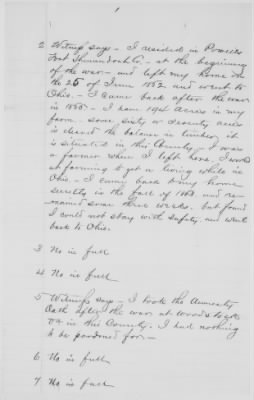 1
2 Witness says - I resided in Powells
Fort Shenandoah Co. - at the beginning
of the war - and left my home on
the 25 of June 1862 and went to
Ohio. - I came back after the war
in 1865 - I have 194 acres in my
farm. some sixty or seventy acres
is cleared the balance in timber, it
is situated in this County - I was
a farmer when I left here, I worked
at farming to get a living while in
Ohio. - I came back to my home
secretly in the fall of 1863 and re-
mained some three weeks. but found
I could not stay with safety, and went
back to Ohio.
3 No in full
4 No in full
5 Witness says - I took the Amnesty
Oath after the war at Woodstock
Va in this County. I had nothing
to be pardoned for -
6 No in full
7 No in full